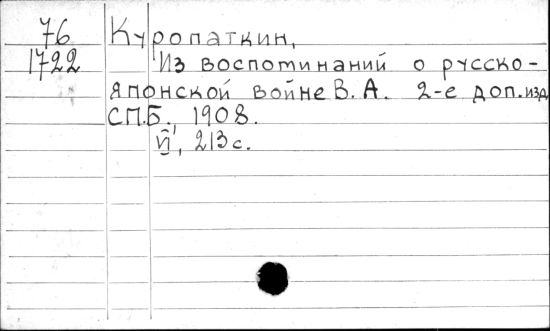 76 Куропаткин,
1722 Из воспоминаний о русско-
японской войне В. А. 2-е доп. изд.
СПБ., 1908.
VI, 213 с.